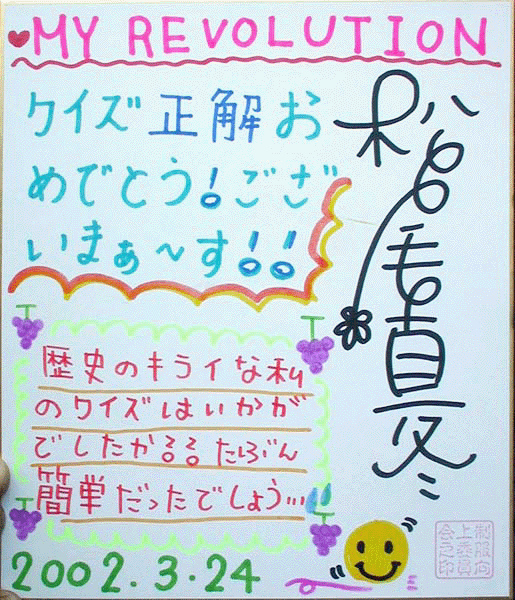 MY REVOLUTION
クイズ正解お
めでとう!ござ
いまぁ〜す!!
歴史のキライな私
のクイズはいかが
でしたか?? たぶん
簡単だったでしょう…
2002.3.24
制服向
上委員
会之印